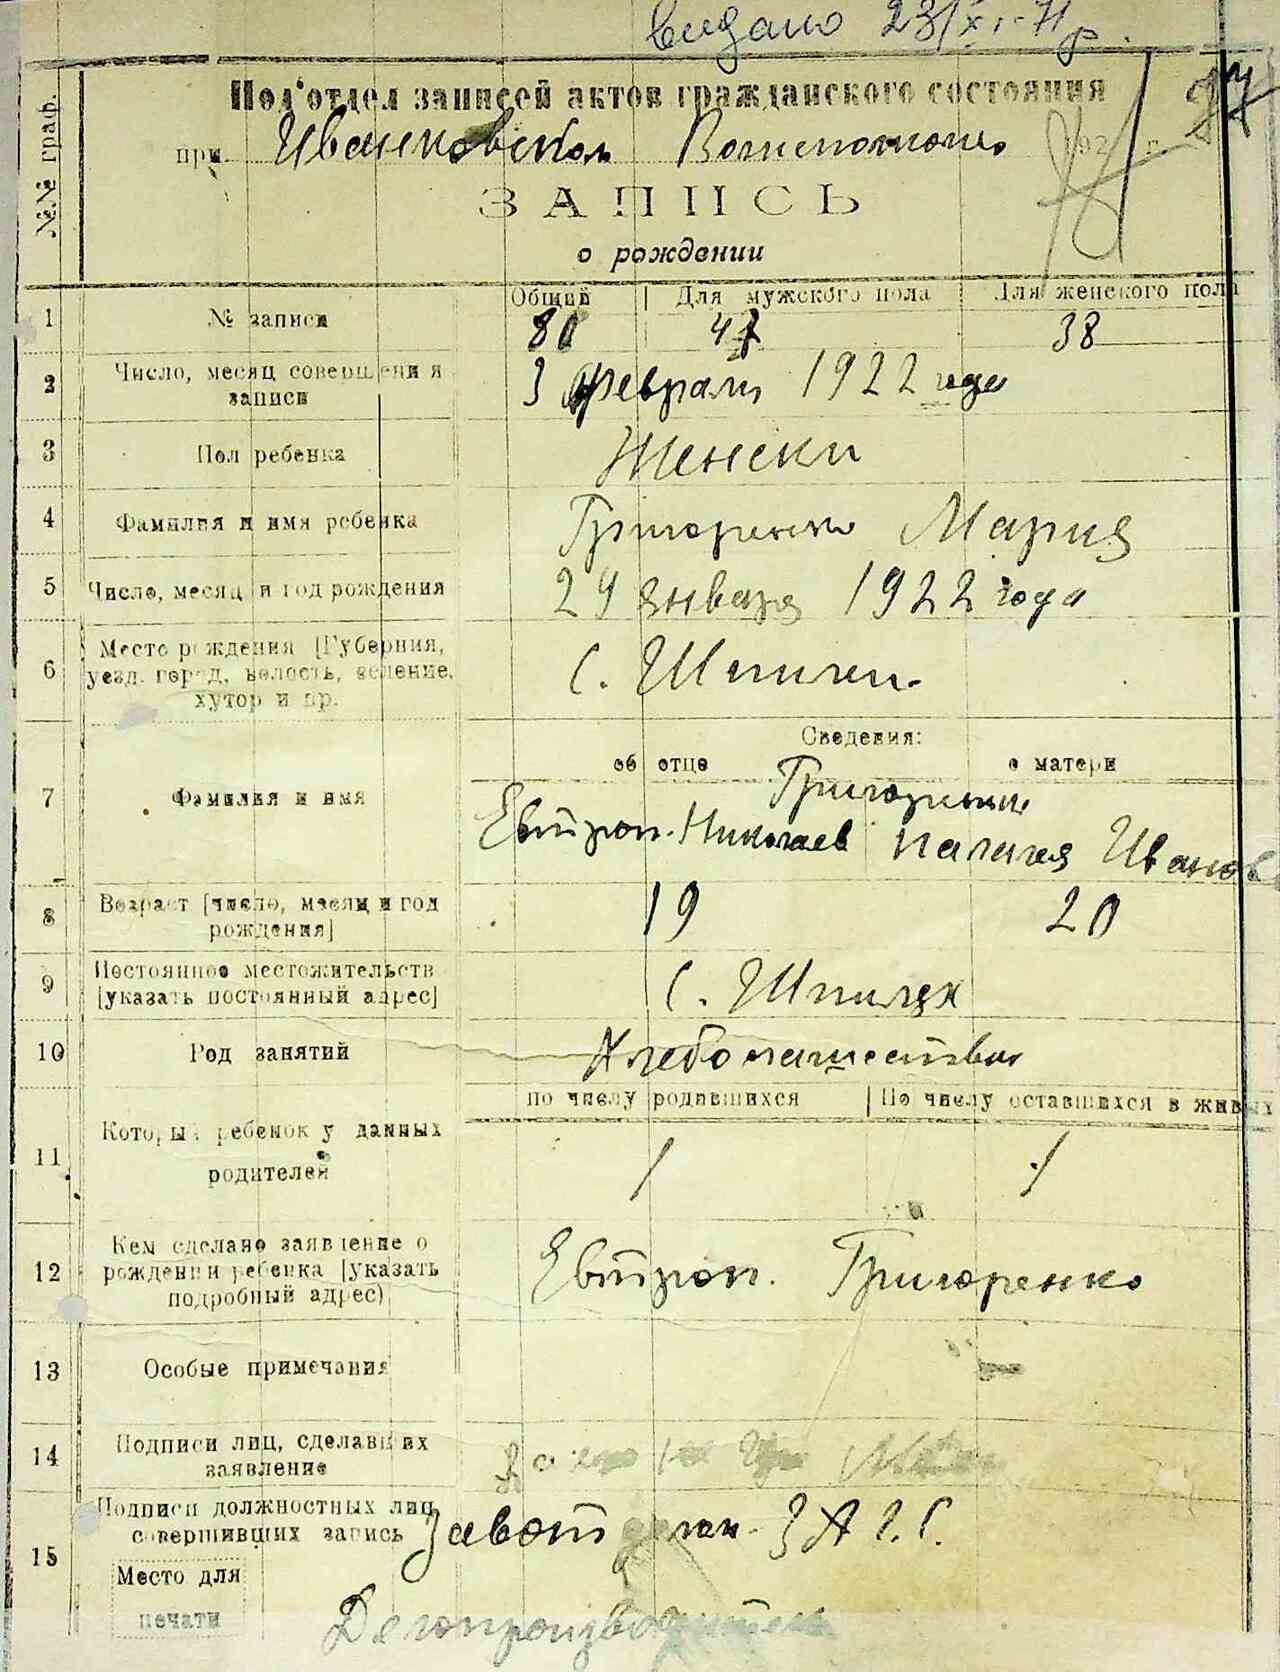 видано 23/XI-71р.
№№ граф.
Под'отдел записей актов гражданского состояния
при Иванковском 192 г.
ЗАПИСЬ
о рождении
Общий Для мужского пола Для женского пола
1 № записи 38
2 Число, месяц совершения записи 3 февраля 1922 года
3 Пол ребенка Женски
4 Фамилия и имя ребенка Григоренко Мария
5 Число, месяц и год рождения 29 января 1922 года
6 Место рождения [Губерния, уезд, город, волость, селение, хутор и пр. с. Шпили
Сведения:
об отце о матери
7 Фамилия и имя Григоренко
Евтроп. Николаев Палагея Иванов
8 Возраст [число, месяц и год рождения] 19 20
9 Постоянное местожительств [указать постоянный адрес] с. Шпилях
10 Род занятий Хлебопашество
по числу родившихся По числу оставшихся в живых
11 Который ребенок у данных родителей 1 1
12 Кем сделано заявление о рождении ребенка [указать подробный адрес) Евтроп. Григоренко
13 Особые примечания
14 Подписи лиц, сделавших заявление
15 Подписи должностных лиц, совершивших запись Завотдел З А Г С.
Место для
печати
Делопроизводитель